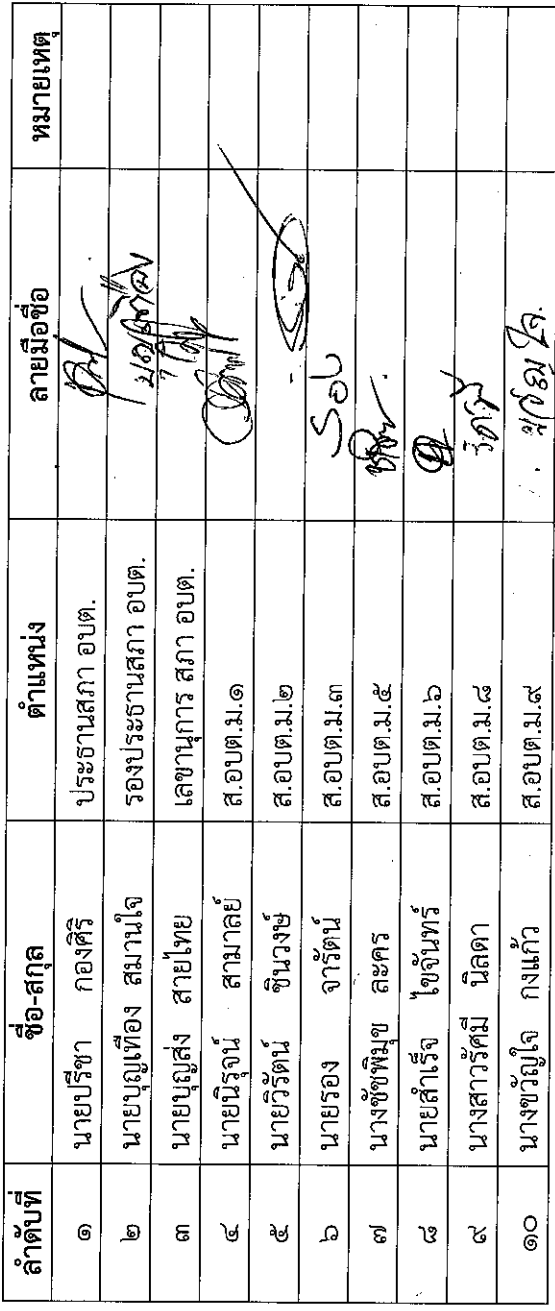 ลำดับที่ ชื่อ-สกุล ตำแหน่ง ลายมือชื่อ หมายเหตุ
๑ นายปรีชา กองศิริ ประธานสภา อบต.
๒ นายบุญเทือง สมานใจ รองประธานสภา อบต.
๓ นายบุญส่ง สายไทย เลขานุการ สภา อบต.
๔ นายนิรุจน์ สามาลย์ ส.อบต.ม.๑
๕ นายวิรัตน์ ชินวงษ์ ส.อบต.ม.๒
๖ นายรอง จารัตน์ ส.อบต.ม.๓
๗ นางชัชพิมุข ละคร ส.อบต.ม.๕
๘ นายสำเร็จ ไขจันทร์ ส.อบต.ม.๖
๙ นางสาวรัศมี นิลดา ส.อบต.ม.๘
๑๐ นางขวัญใจ กงแก้ว ส.อบต.ม.๙